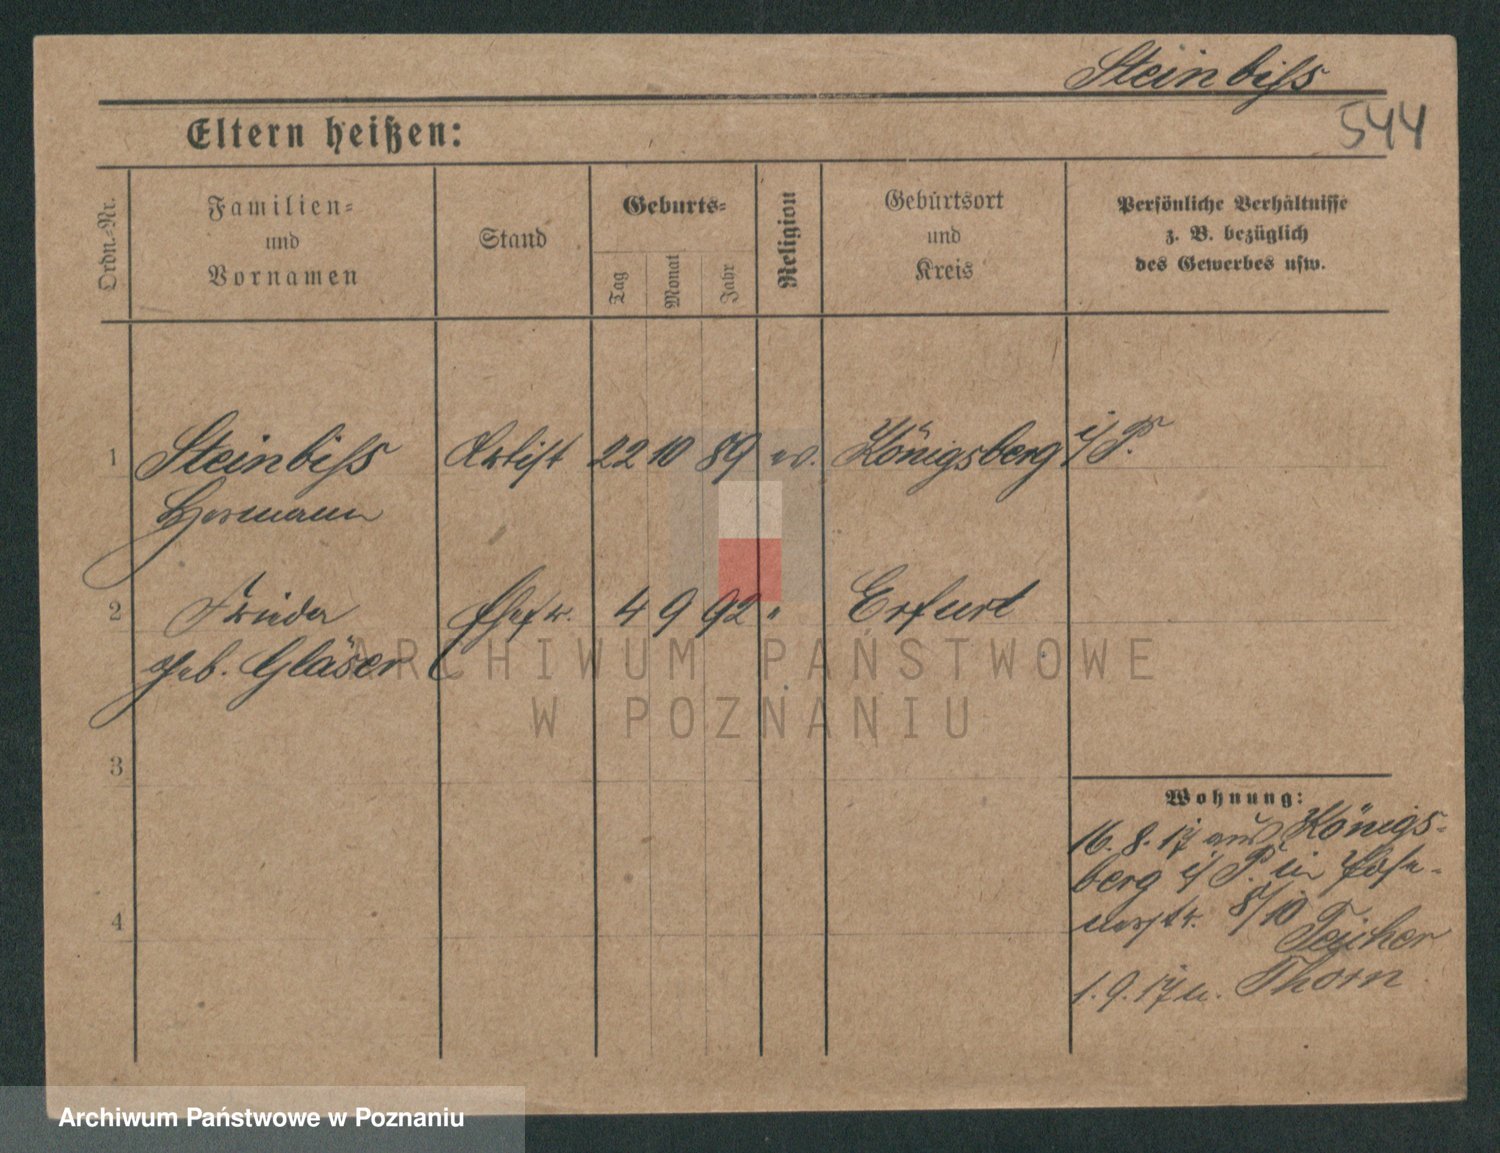 Steinbiß
544
Eltern heißen:
Ordn.-Nr.
Familien-
und
Vornamen
Stand
Geburts-
Tag
Monat
Jahr
Religion
Geburtsort
und
Kreis
Persönliche Verhältnisse
z. B. bezüglich
des Gewerbes usw.
1 Steinbiß Artist 22 10 89 ev. Königsberg i/P.
Hermann
2 Frieda Ehefr. 4 9 92 " Erfurt
geb. Gläser
3
4
Wohnung:
16. 8. 17 aus Königs-
berg i/P. in Pose-
nerstr. 8/10
Teicher
1. 9. 17 n. Thorn
ARCHIWUM PAŃSTWOWE
W POZNANIU
Archiwum Państwowe w Poznaniu